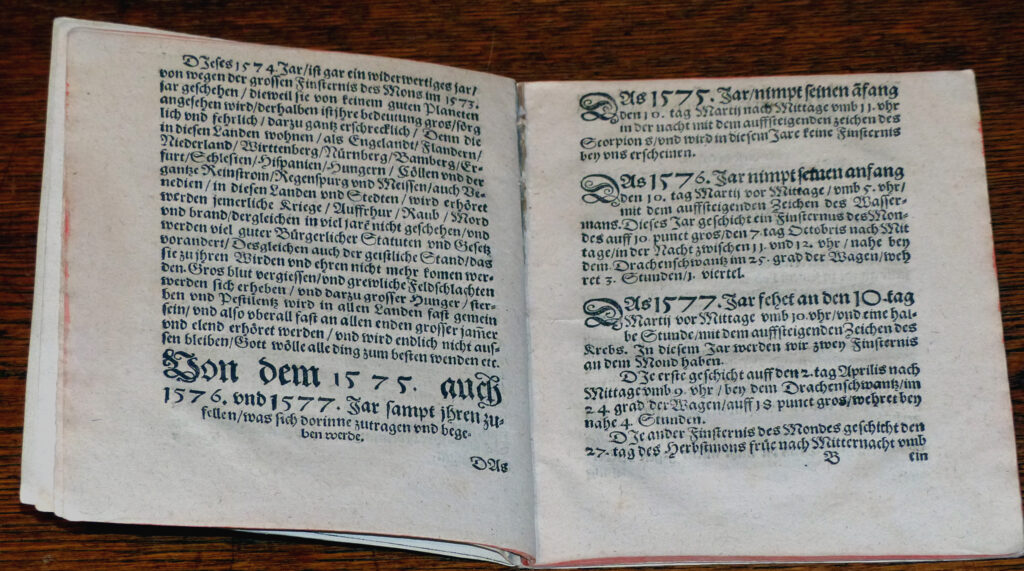 DJeses 1574. Jar/ist gar ein widerwertiges jar/
von wegen der grossen Finsternis des Mons im 1573.
jar geschehen/dieweil sie von keinem guten Planeten
angesehen wird/derhalben ist jhre bedeutung gros/sörg
lich und fehrlich/darzu gantz erschrecklich/ Denn die
in diesen Landen wohnen/als Engelandt/Flandern/
Niederland/Wirttenberg/Nürnberg/Bamberg/Er-
furt/Schlesien/Hispanien/Hungern/ Cöllen und der
gantze Reinstrom/Regenspurg und Meissen/auch Ve-
nedien/in diesen Landen und Stedten/wird erhöret
werden jemerliche Kriege/Auffrhur/Raub/Mord
und brand/dergleichen in viel jarē nicht geschehen/und
werden viel guter Bürgerlicher Statuten und Gesetz
vorandert/Desgleichen auch der geistliche Stand/das
sie zu jhren Wirden und ehren nicht mehr komen wer-
den. Gros blut vergiessen/und grewliche Feldschlachten
werden sich erheben/und darzu grosser Hunger/ster-
ben und Pestilentz wird in allen Landen fast gemein
sein/und also vberall fast an allen enden grosser jam̄er
vnd elend erhöret werden/und wird endlich nicht auf-
sen bleiben/Gott wölle alle ding zum besten wenden etc.
Von dem 1575. auch
1576. vnd 1577. Jar sampt jhren zu-
fellen/was sich dorinne zutragen und bege-
ben werde.
DAs
DAs 1575. Jar/nimpt seinen āfang
den 10. tag Martij nach Mittage vmb 11. vhr
in der nacht mit dem auffsteigenden zeichen des
Scorpions/und wird in diesem Jare keine Finsternis
bey uns erscheinen.
DAs 1576. Jar nimpt seinen anfang
den 10. tag Martij vor Mittage/vmb 5. vhr/
mit dem auffsteigenden Zeichen des Wasser-
mans. Dieses Jar geschicht ein Finsternus des Mon-
des auff 10 punct gros/den 7. tag Octobris nach Mit
tage/in der Nacht zwischen 11. und 12. vhr/nahe bey
dem Drachenschwantz im 25. grad der Wagen/weh
ret 3. Stunden/1. viertel.
DAs 1577. Jar fehet an den 10. tag
Martij vor Mittage vmb 10. vhr/vnd eine hal-
be Stunde/mit dem auffsteigenden Zeichen des
Krebs. In diesem Jar werden wir zwey Finsternis
an dem Mond haben.
DJe erste geschicht auff den 2. tag Aprilis nach
Mittage vmb 9. vhr/bey dem Drachenschwantz/im
24. grad der Wagen/auff 18 punct gros/wehret bey
nahe 4. Stunden.
DJe ander Finsternis des Mondes geschicht den
27. tag des Herbstmons früe nach Mitternacht vmb
B ein